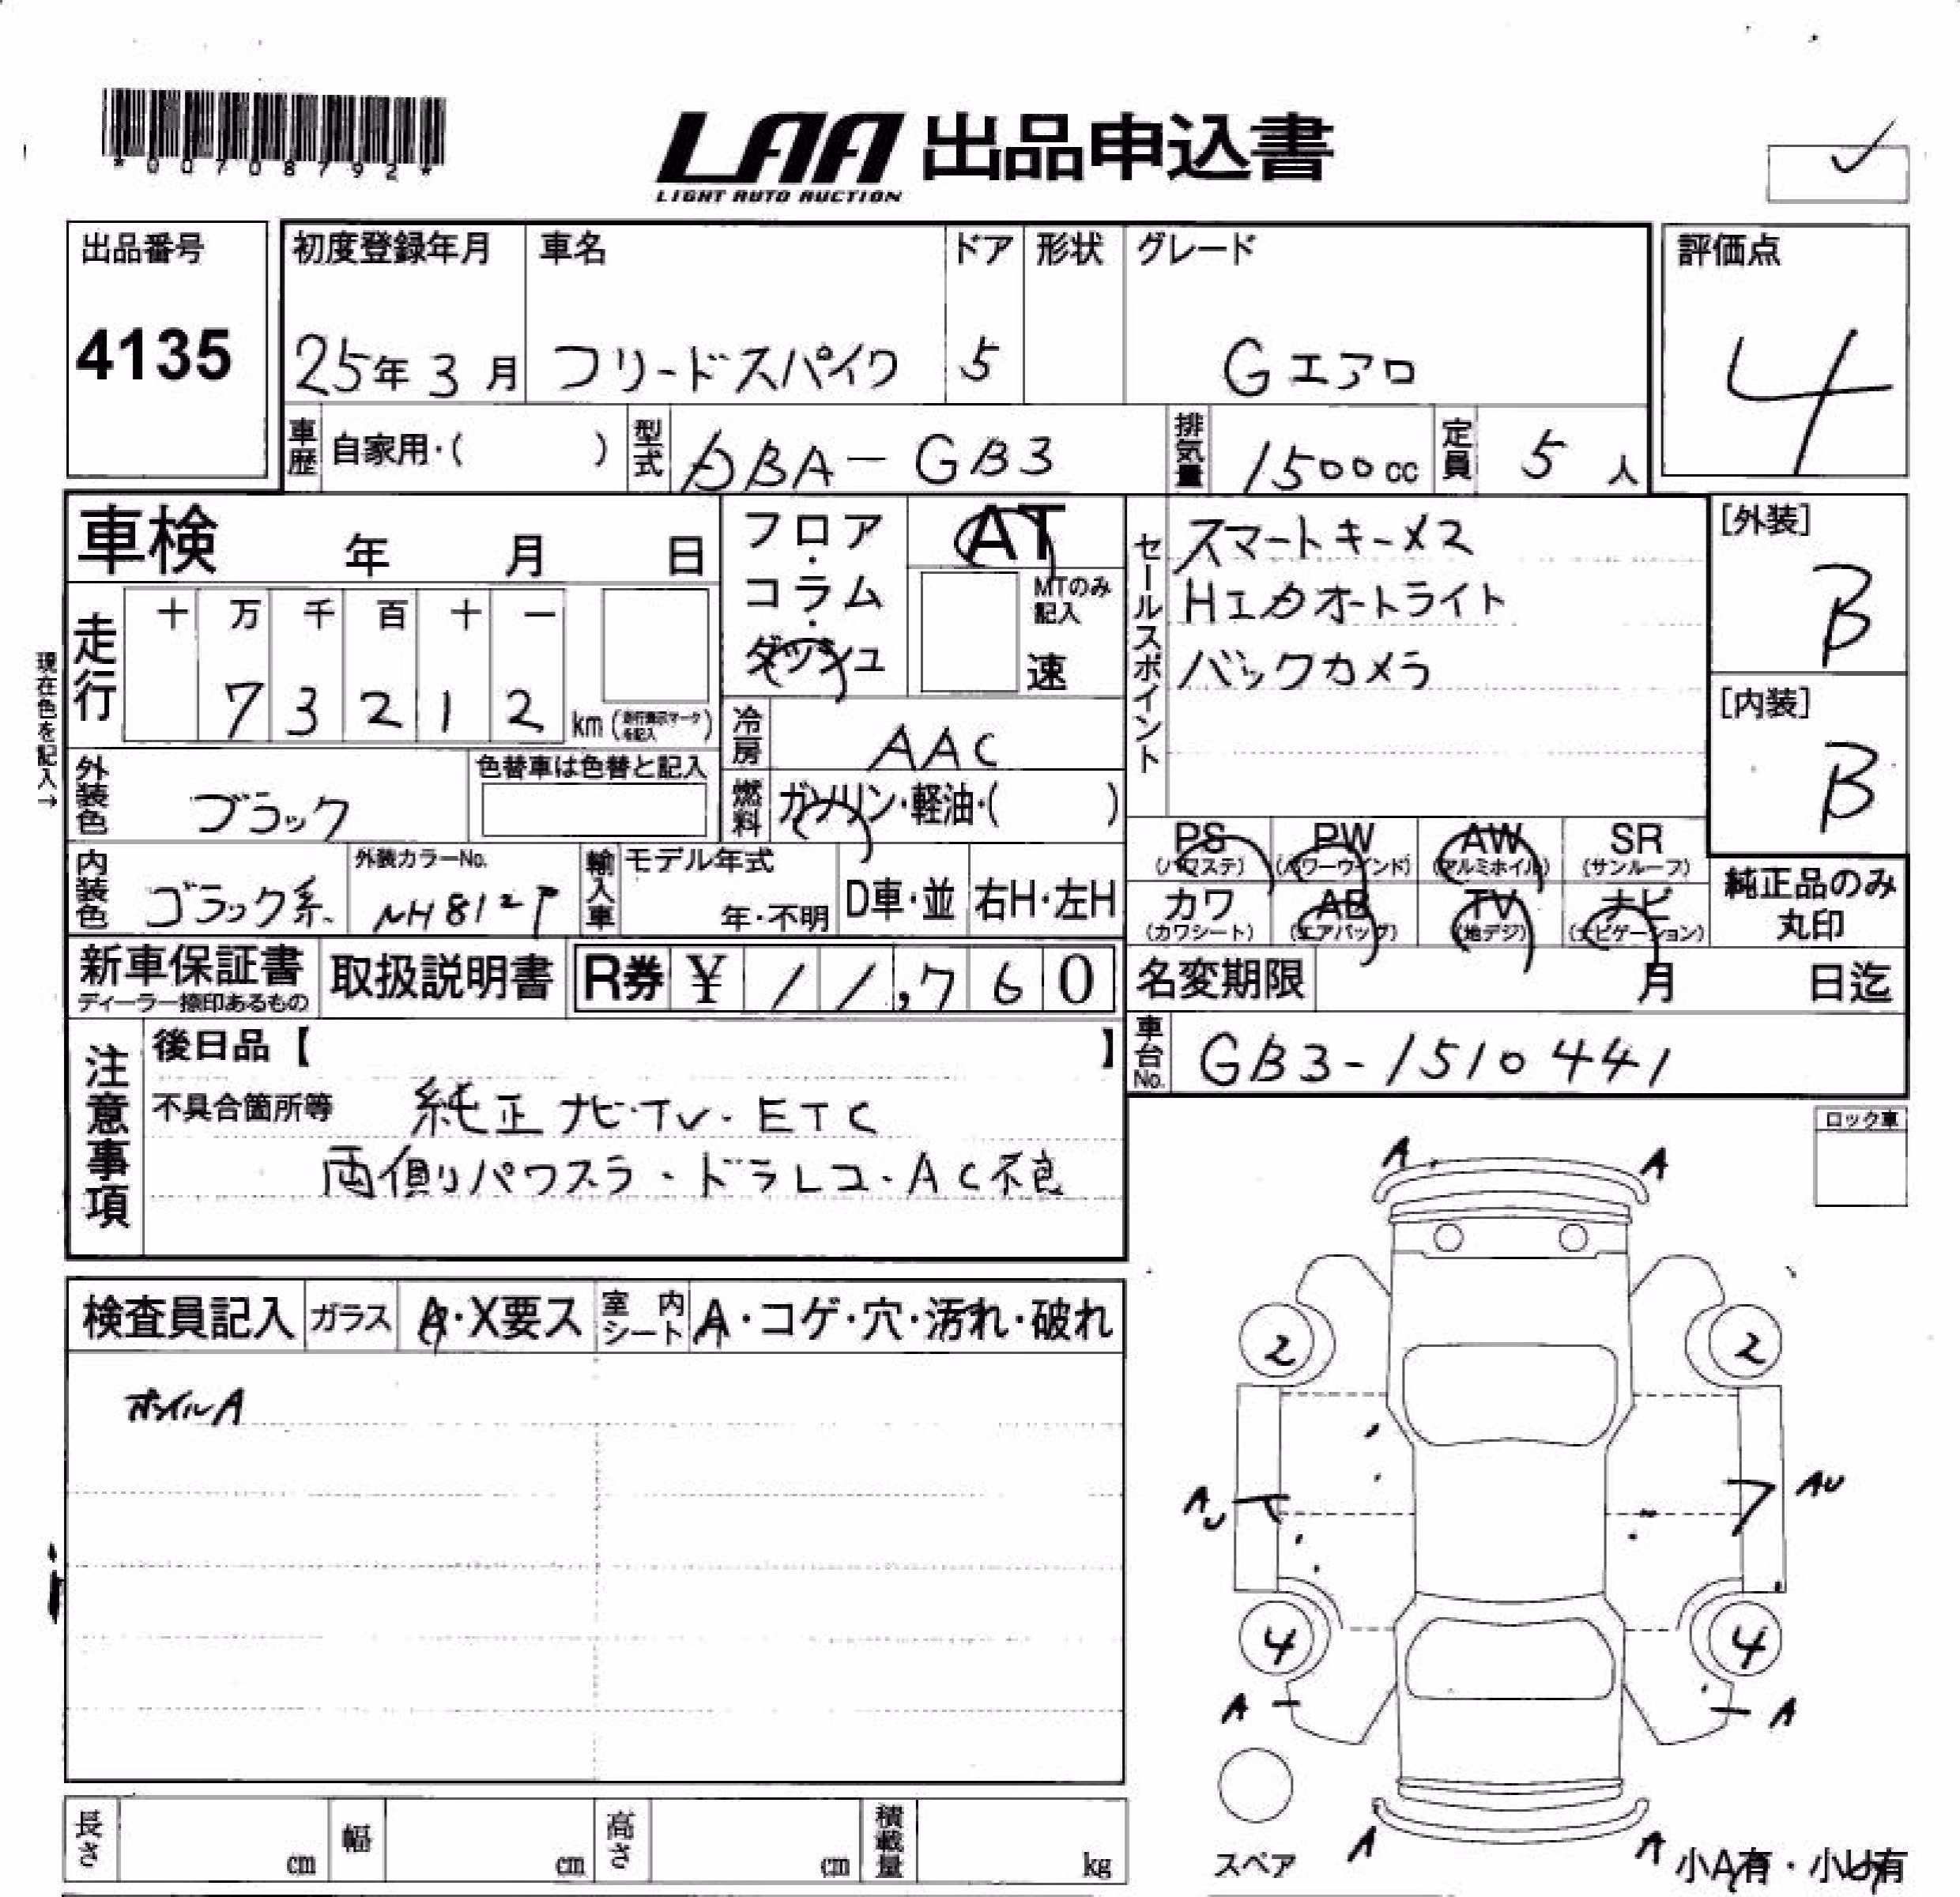 *00708792*
LAA 出品申込書
LIGHT AUTO AUCTION
出品番号
4135
初度登録年月 車名 ドア 形状 グレード
25年 3月 フリードスパイク 5 Gエアロ
評価点
4
車歴 自家用・( ) 型式 DBA-GB3 排気量 1500cc 定員 5人
車検 年 月 日
フロア・コラム・ダッシュ
AT
MTのみ記入
速
セールスポイント
スマートキーX2
HIDオートライト
バックカメラ
[外装]
B
[内装]
B
現在色を記入→
走行 十 万 千 百 十 一
7 3 2 1 2 km (走行表示マークを記入)
冷房 AAC
外装色 ブラック
色替車は色替と記入
燃料 ガソリン・軽油・( )
内装色 ブラック系
外装カラーNo.
NH812P
輸入車 モデル年式
年・不明 D車・並 右H・左H
PS (パワステ) PW (パワーウインド) AW (アルミホイル) SR (サンルーフ)
カワ (カワシート) AB (エアバッグ) TV (地デジ) ナビ (ナビゲーション)
純正品のみ丸印
新車保証書
ディーラー捺印あるもの
取扱説明書 R券 ¥ 11,760
名変期限 月 日迄
車台No. GB3-1510441
注意事項
後日品【 】
不具合箇所等 純正ナビ・TV・ETC
両側パワスラ・ドラレコ・AC不良
ロック車
検査員記入 ガラス A・X要ス 室内シート A・コゲ・穴・汚れ・破れ
ホイルA
A A
2 2
AU AU
4 4
A A
A A
スペア
小A有・小U有
長さ cm 幅 cm 高さ cm 積載量 kg